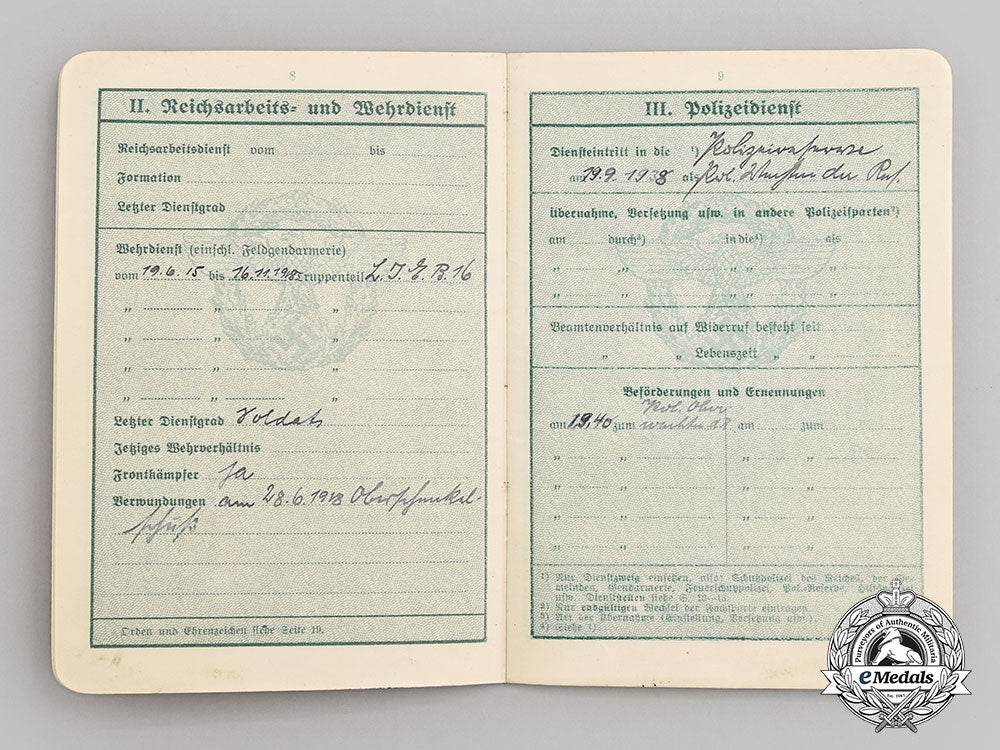 8
II. Reichsarbeits- und Wehrdienst
Reichsarbeitsdienst vom bis
Formation
Letzter Dienstgrad
Wehrdienst (einschl. Feldgendarmerie)
vom 19.6.15 bis 16.11.18 Truppenteil L. I. E. B. 16
" " "
" " "
" " "
" " "
Letzter Dienstgrad Soldat
Jetziges Wehrverhältnis
Frontkämpfer ja
Verwundungen am 28.6.1918 Oberschenkel-
schuß
Orden und Ehrenzeichen siehe Seite 19.
9
III. Polizeidienst
Diensteintritt in die ¹) Polizeireserve
am 19.9.1938 als Pol. der Res.
Übernahme, Versetzung usw. in andere Polizeisparten²)
am durch³) in die⁴) als
" " " "
" " " "
Beamtenverhältnis auf Widerruf besteht seit
" " Lebenszeit " "
Beförderungen und Ernennungen
Pol. Ober
am 19.40 zum wachtm. d.R. am zum
" " " "
" " " "
" " " "
" " " "
¹) Nur Dienstzweig einsetzen, also: Schutzpolizei des Reiches, der Ge-
meinden, Gendarmerie, Feuerschutzpolizei, Pol.-Reserve,
usw. Dienststellen siehe S.
²) Nur endgültigen Wechsel der Fachsparte eintragen.
³) Art der Übernahme (Einstellung, Versetzung usw.)
⁴) Siehe ¹)
Purveyors of Authentic Militaria
eMedals